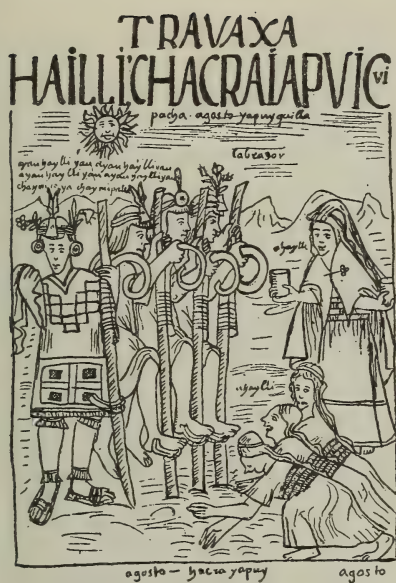 TRAVAXA
HAILLI'CHACRAIAPVIC
vi
pacha · agosto · yapuy quilla
labrador
ayau haylli yau ayau haylli yau
ayau haylli yau ayau haylli yau
ahaylli
ahaylli
agosto — hacra yapuy
agosto